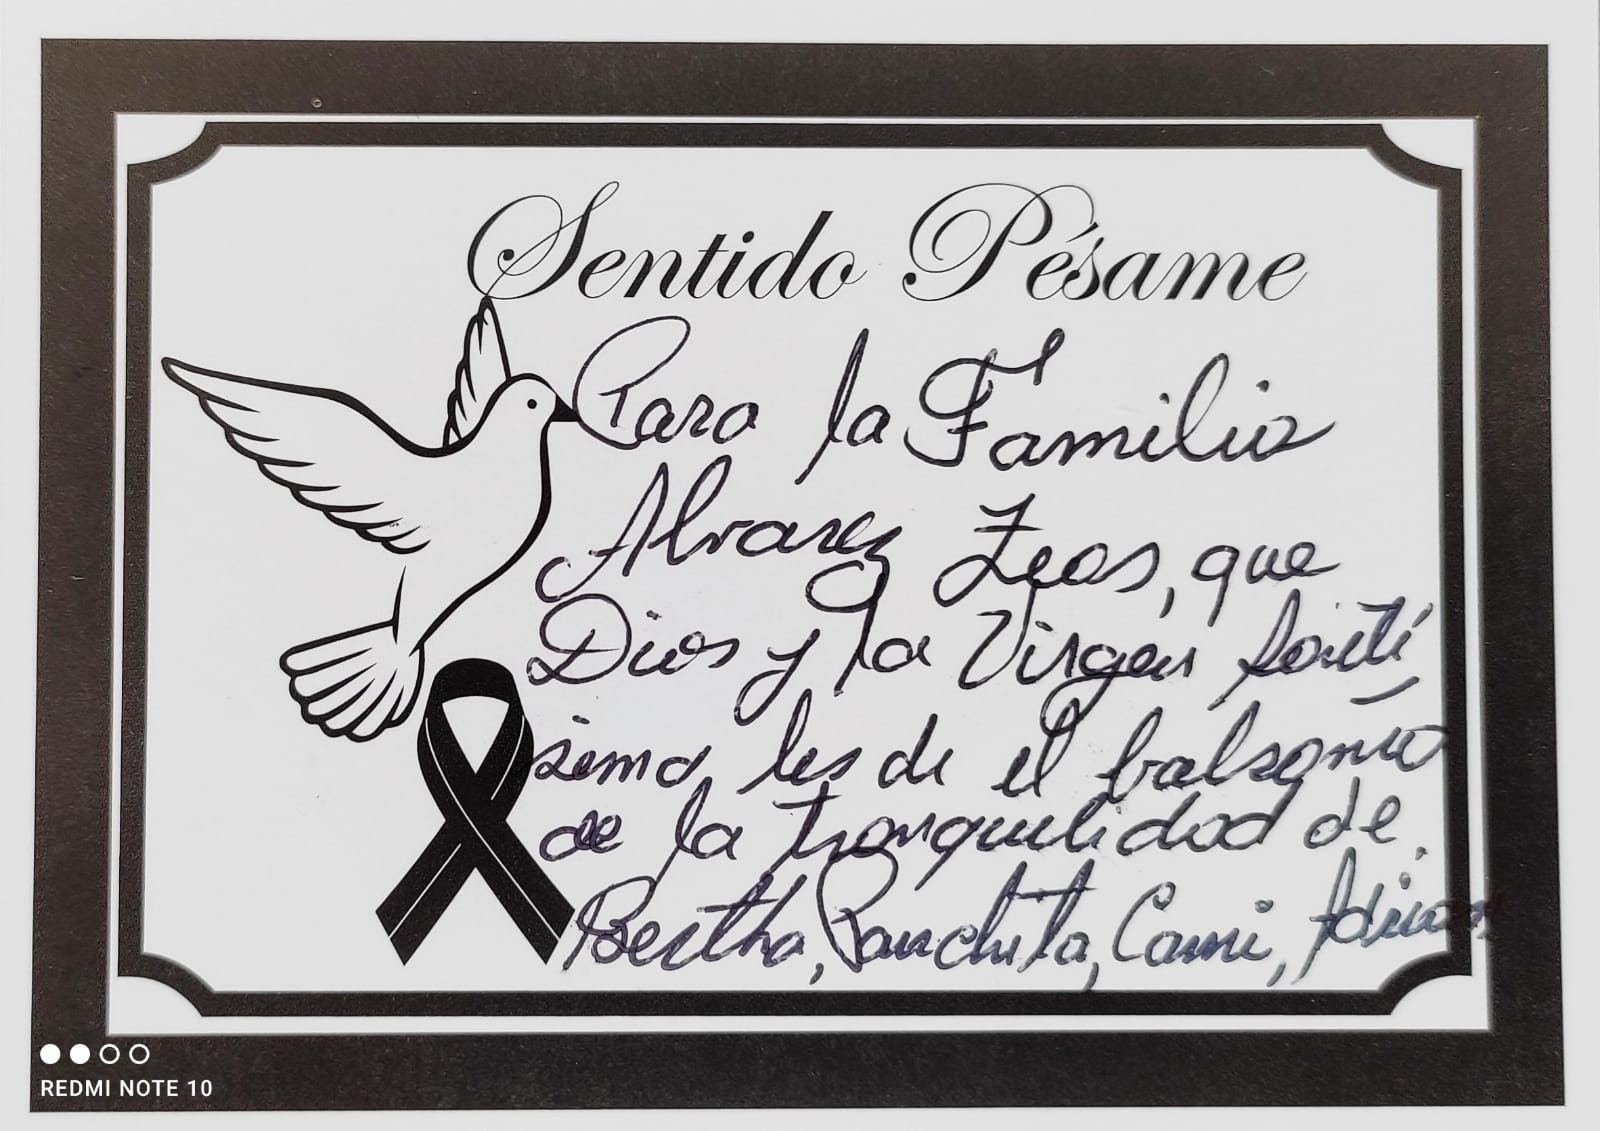 Sentido Pésame
Para la Familia
Alvarez Zeas, que
Dios y la Virgen Santí
sima, les de el balsamo
de la tranquilidad de
Bertha, Panchita, Cami, Adrian
REDMI NOTE 10